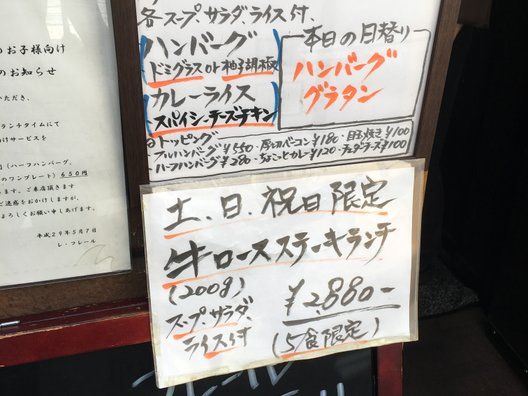 のお子様向け
のお知らせ
いただき、
ランチタイムにて
向けサービスを
(ハーフハンバーグ、
のワンプレート)650円
ます。ご来店頂きます
ご迷惑をおかけしますが、
よろしくお願い申しあげます。
平成29年5月7日
レ・フレール
各スープ、サラダ、ライス付、
ハンバーグ
ドミグラス or 柚子胡椒
カレーライス
スパイシーチーズチキン
本日の日替り
ハンバーグ
グラタン
トッピング
・フルハンバーグ ¥550 ・厚切ベーコン ¥180 ・目玉焼き ¥100
・ハーフハンバーグ ¥280 ・ちょこっとカレー ¥120 ・チェダーチーズ ¥100
土、日、祝日限定
牛ロースステーキランチ
(200g)
スープ、サラダ、
ライス付
¥2,880-
(5食限定)